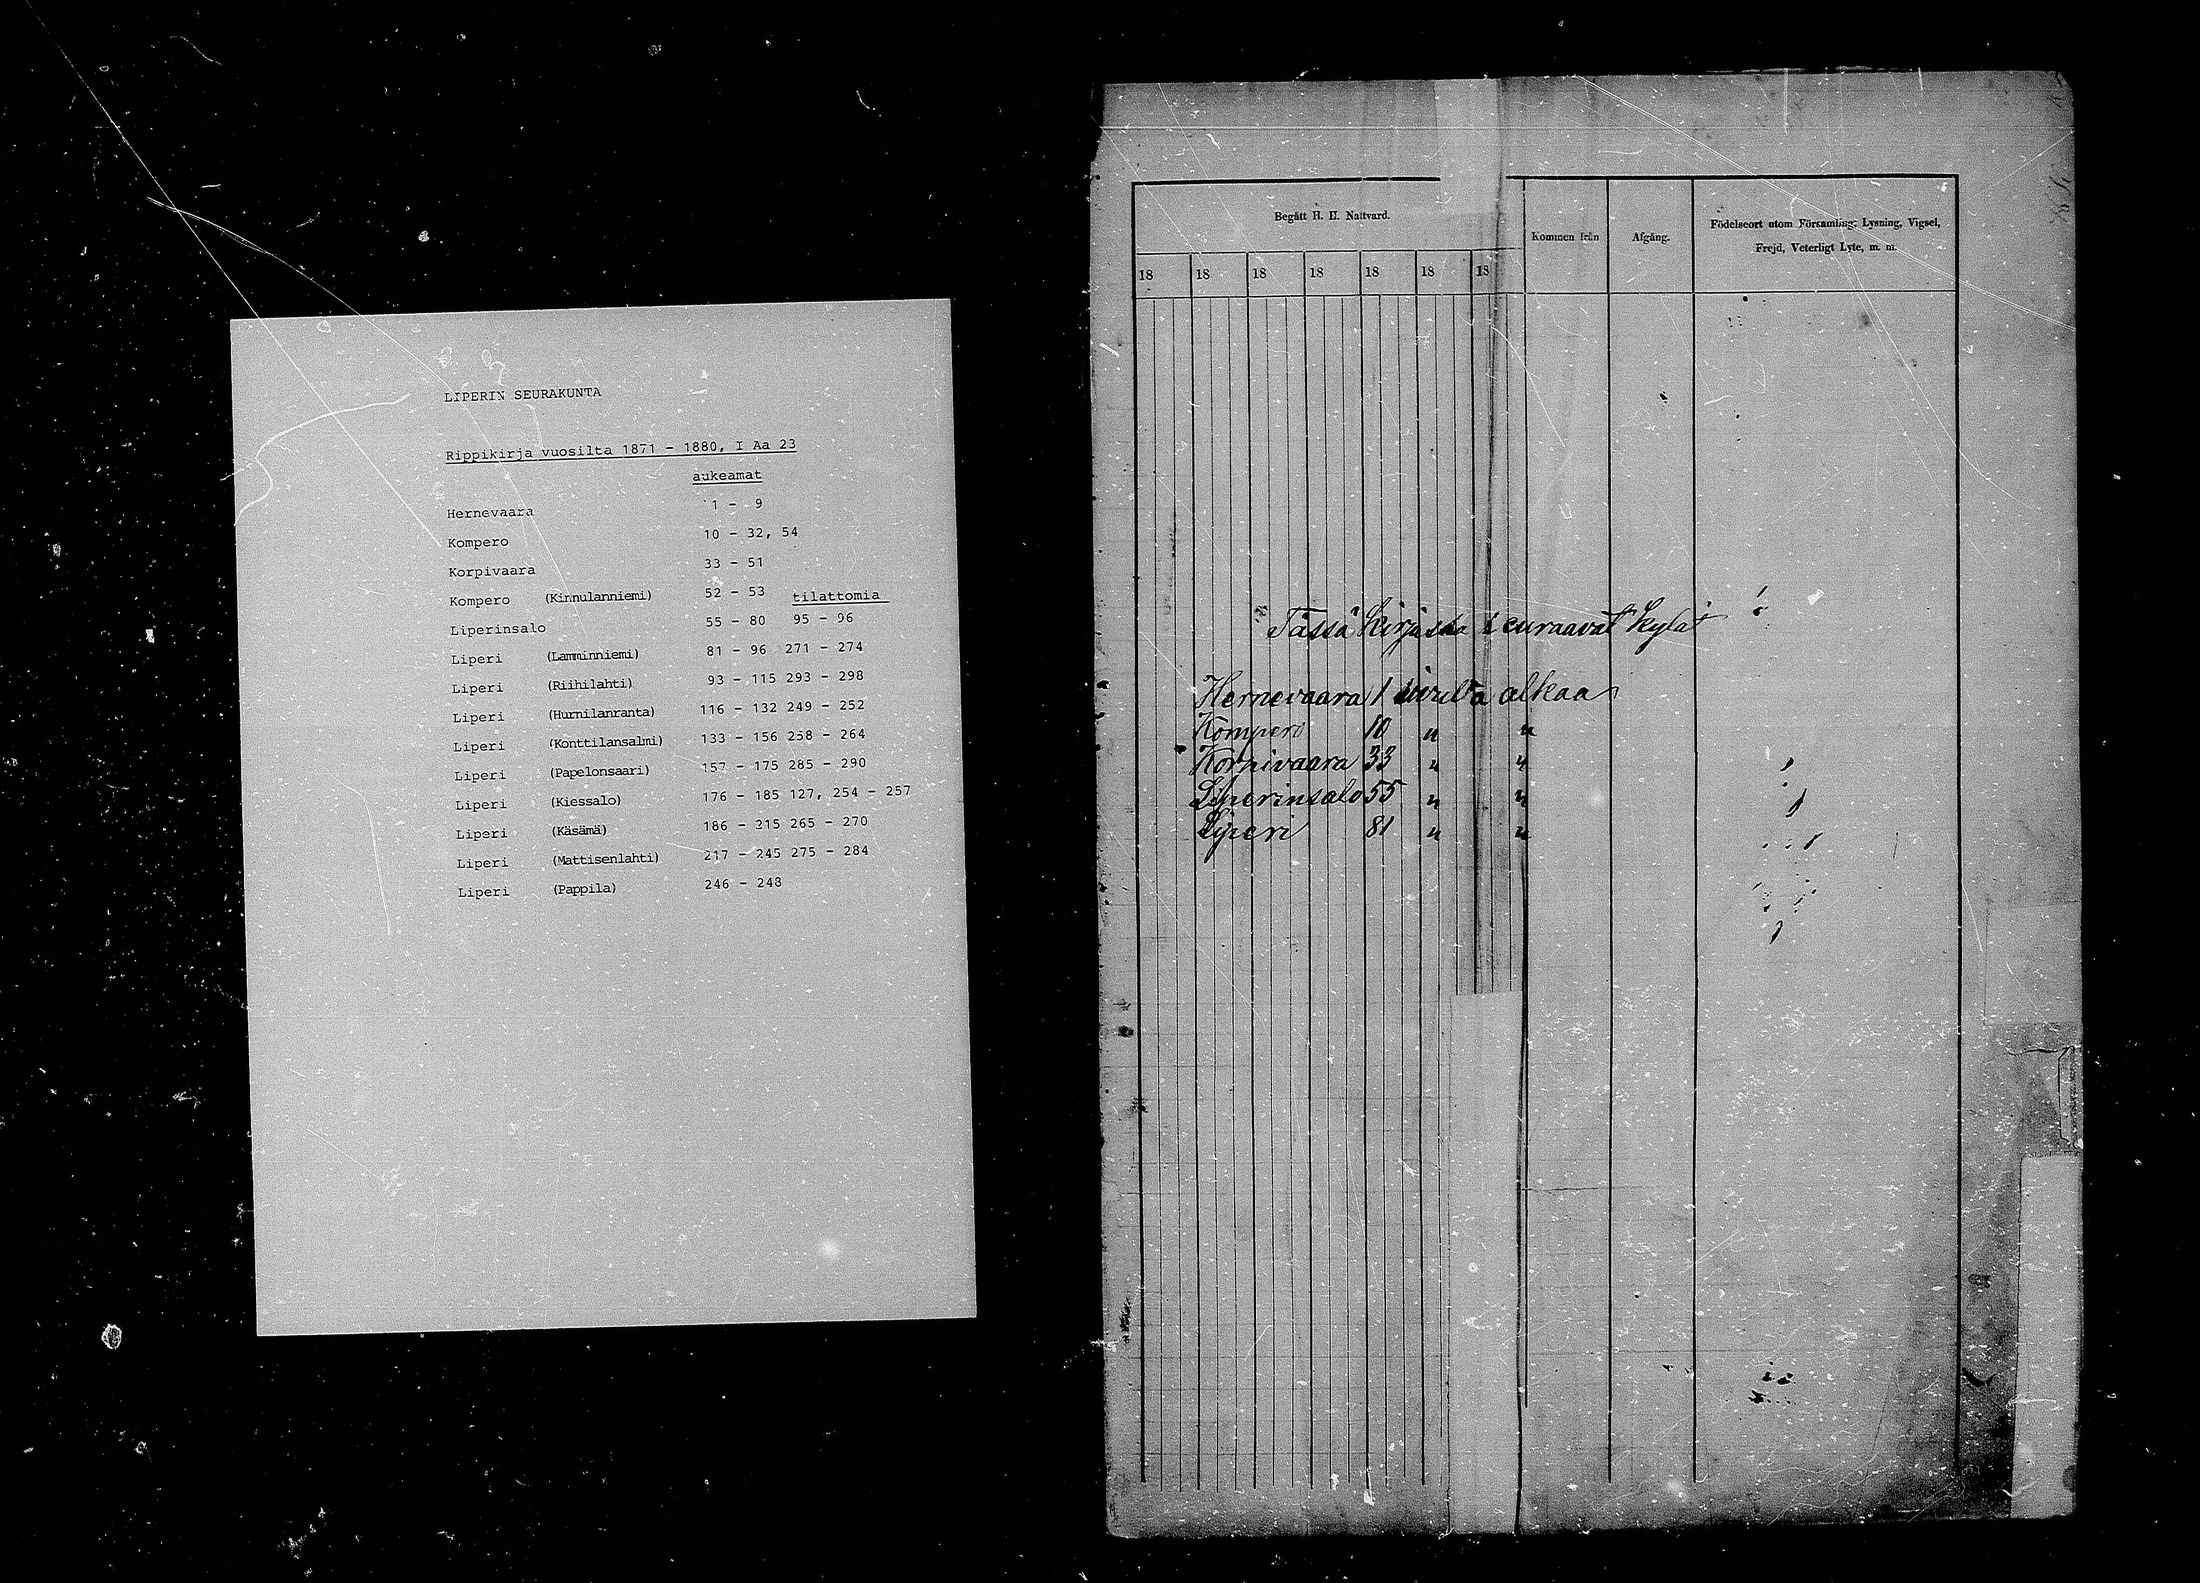 LIPERIN SEURAKUNTA
Rippikirja vuosilta 1871 - 1880, I Aa 23
aukeamat
Hernevaara 1 - 9
Kompero 10 - 32, 54
Korpivaara 33 - 51
Kompero (Kinnulanniemi) 52 - 53 tilattomia
Liperinsalo 55 - 80 95 - 96
Liperi (Lamminniemi) 81 - 96 271 - 274
Liperi (Riihilahti) 93 - 115 293 - 298
Liperi (Hurnilanranta) 116 - 132 249 - 252
Liperi (Konttilansalmi) 133 - 156 258 - 264
Liperi (Papelonsaari) 157 - 175 285 - 290
Liperi (Kiessalo) 176 - 185 127, 254 - 257
Liperi (Käsämä) 186 - 215 265 - 270
Liperi (Mattisenlahti) 217 - 245 275 - 284
Liperi (Pappila) 246 - 248
Begått H. H. Nattvard.
Kommen från
Afgång.
Födelseort utom Församling; Lysning, Vigsel,
Frejd, Veterligt Lyte, m. m.
18 18 18 18 18 18 18
Tässä kirjassa seuraavat kylät
Hernevaara 1 sivulta alkaa
Kompero 10 " "
Korpivaara 33 " "
Liperinsalo 55 " "
Liperi 81 " "